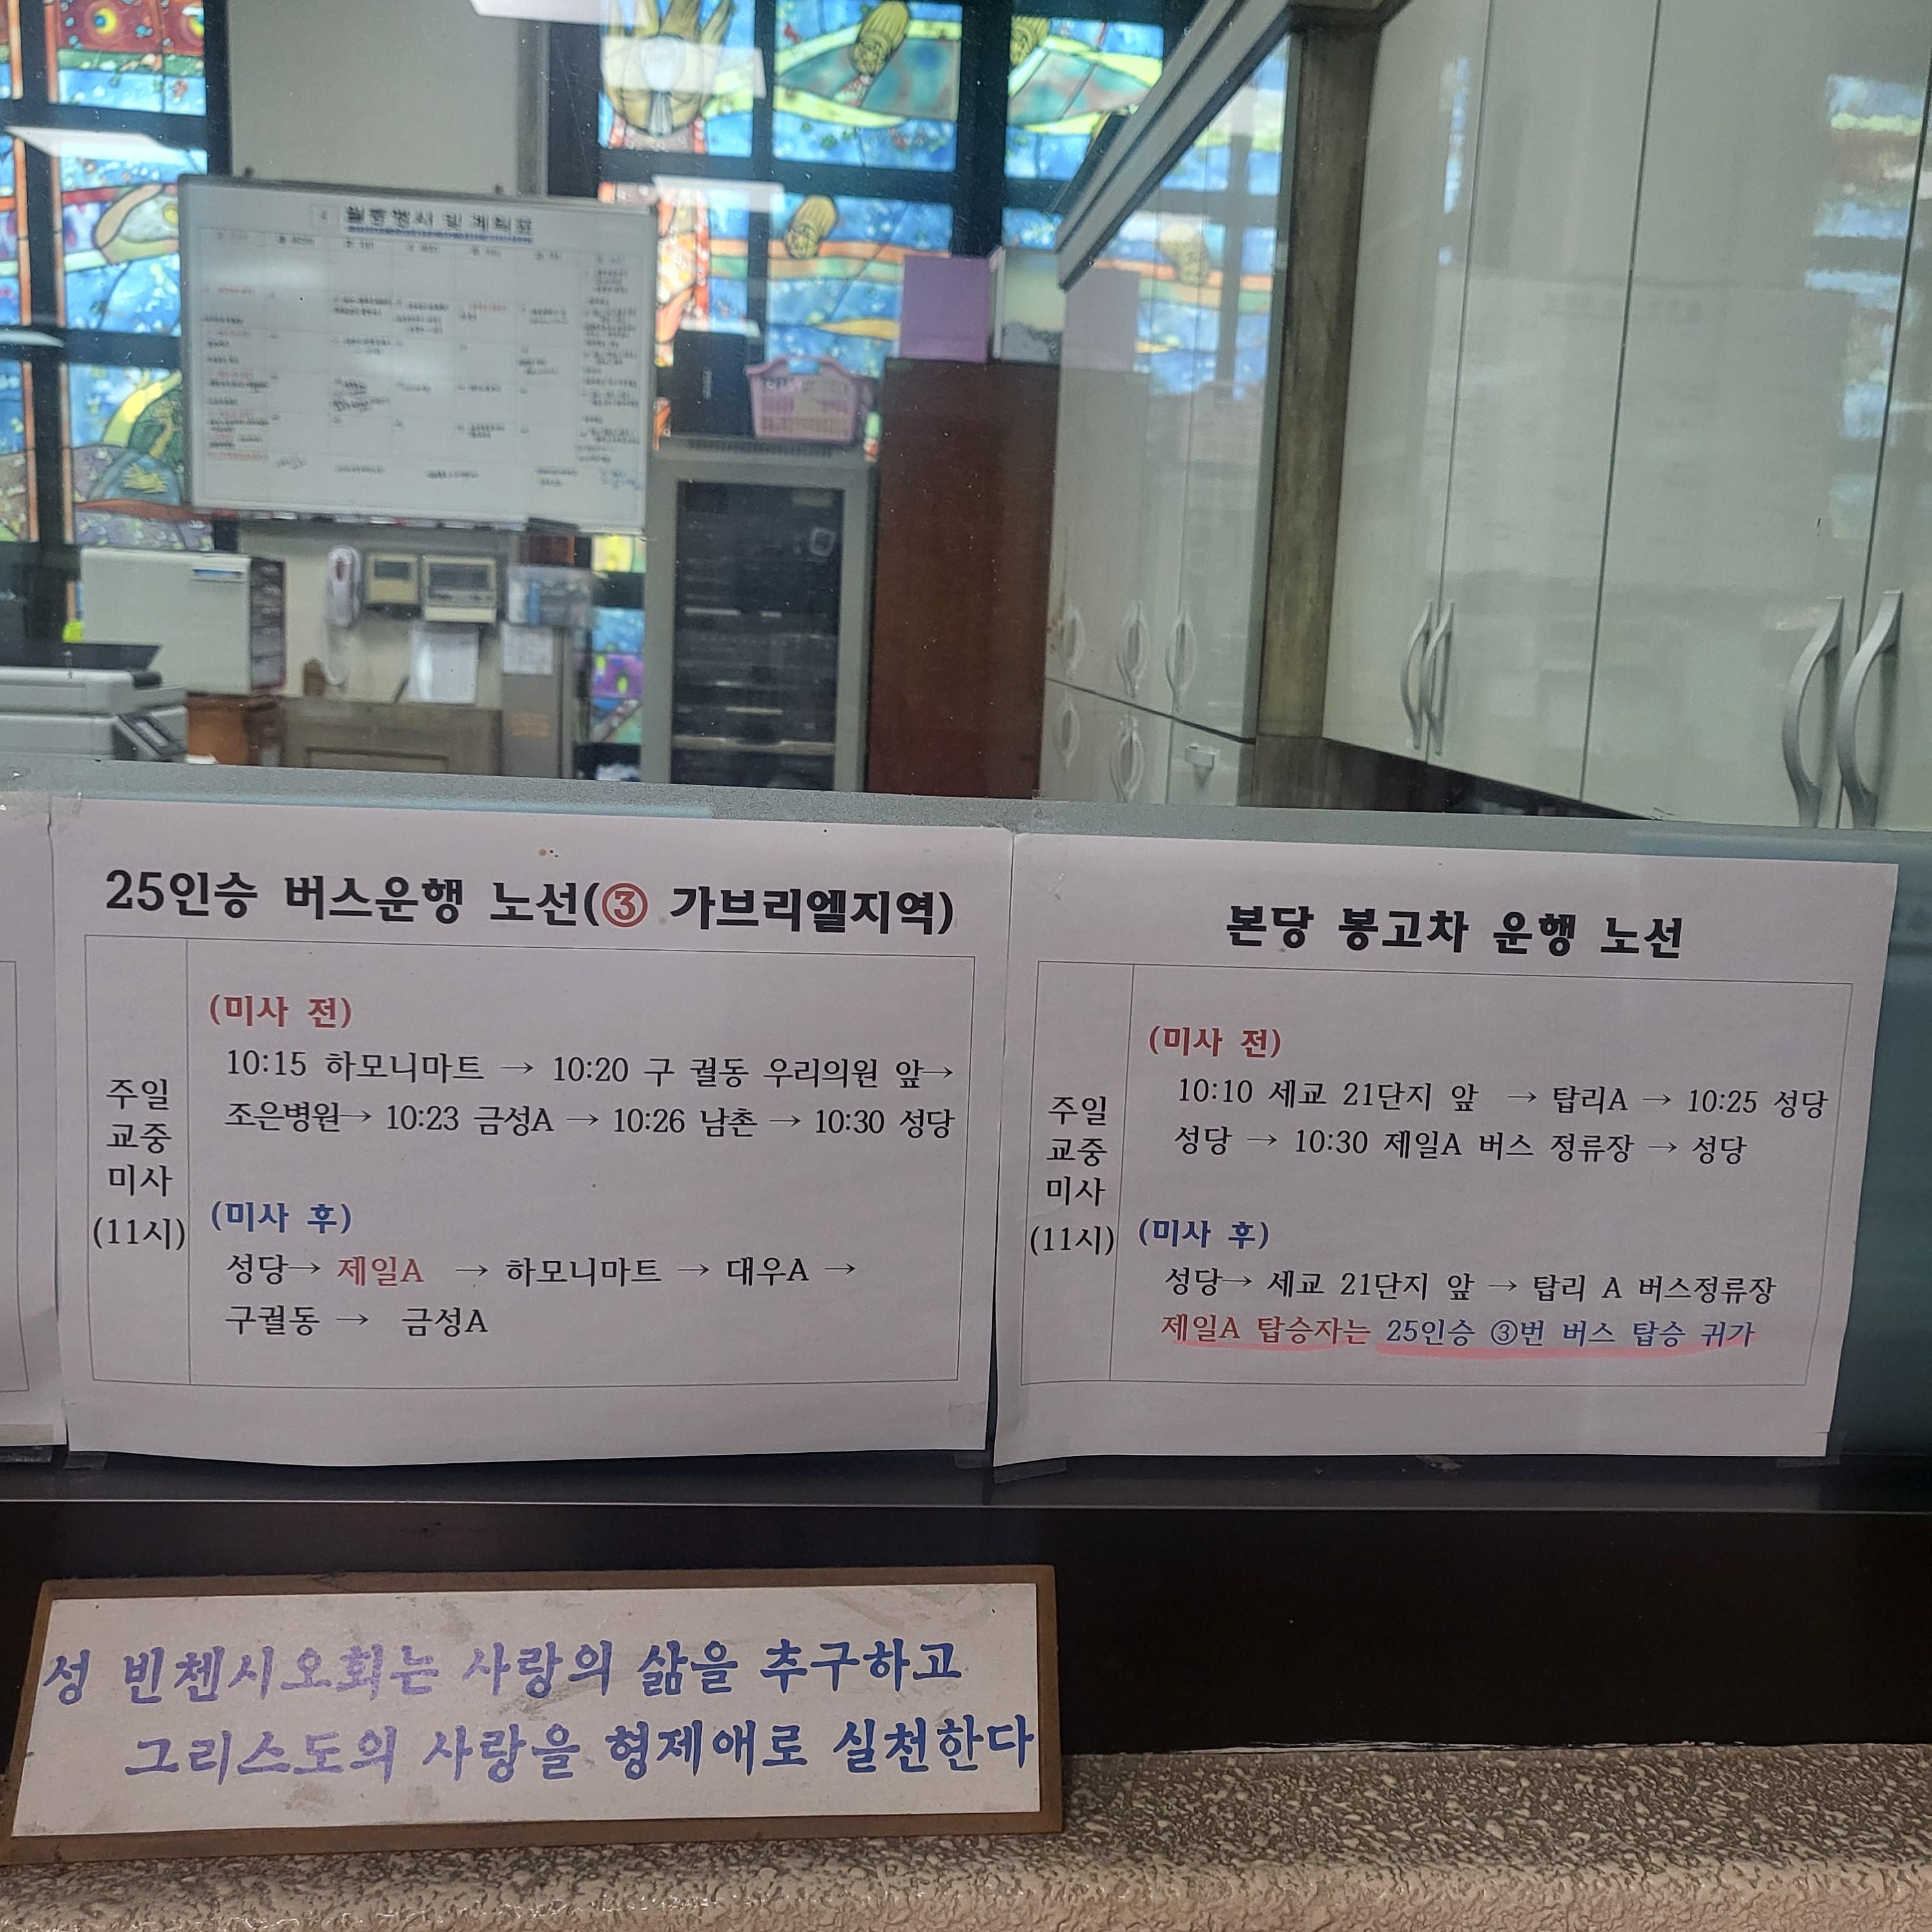 월중행사 및 계획표
25인승 버스운행 노선(③ 가브리엘지역)
주일
교중
미사
(11시)
(미사 전)
10:15 하모니마트 → 10:20 구 궐동 우리의원 앞→
조은병원→ 10:23 금성A → 10:26 남촌 → 10:30 성당
(미사 후)
성당→ 제일A → 하모니마트 → 대우A →
구궐동 → 금성A
본당 봉고차 운행 노선
주일
교중
미사
(11시)
(미사 전)
10:10 세교 21단지 앞 → 탑리A → 10:25 성당
성당 → 10:30 제일A 버스 정류장 → 성당
(미사 후)
성당→ 세교 21단지 앞 → 탑리 A 버스정류장
제일A 탑승자는 25인승 ③번 버스 탑승 귀가
성 빈첸시오회는 사랑의 삶을 추구하고
그리스도의 사랑을 형제애로 실천한다